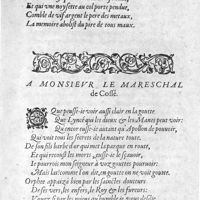 Et qui une noysette au col portē pendue,
Comblé de vif argent le pere des metaux,
La memoire abolist du pire de tous maux.
A MONSIEVR LE MARESCHAL
de Cossé.
QVe peusse-ie voir aussi clair en la goutte
Que Lyncé qui les dieux & les Manes peut voir:
Ou encor eusse-ie autant qu'Apollon de pouuoir,
Qui voit tous les secrets de la nature toute.
De son fils
et qui mort la parque en route,
Et qui recoust les morts, eusse-ie le sçauoir,
Ie pourrois mon seigneur à voz gouttes pouruoir:
Mais las! comme l'on dit, en goutte on ne voit goutte.
Orphee appaisa bien par les fainctes douceurs
De ses vers, les enfers, le Roy & les fureurs: